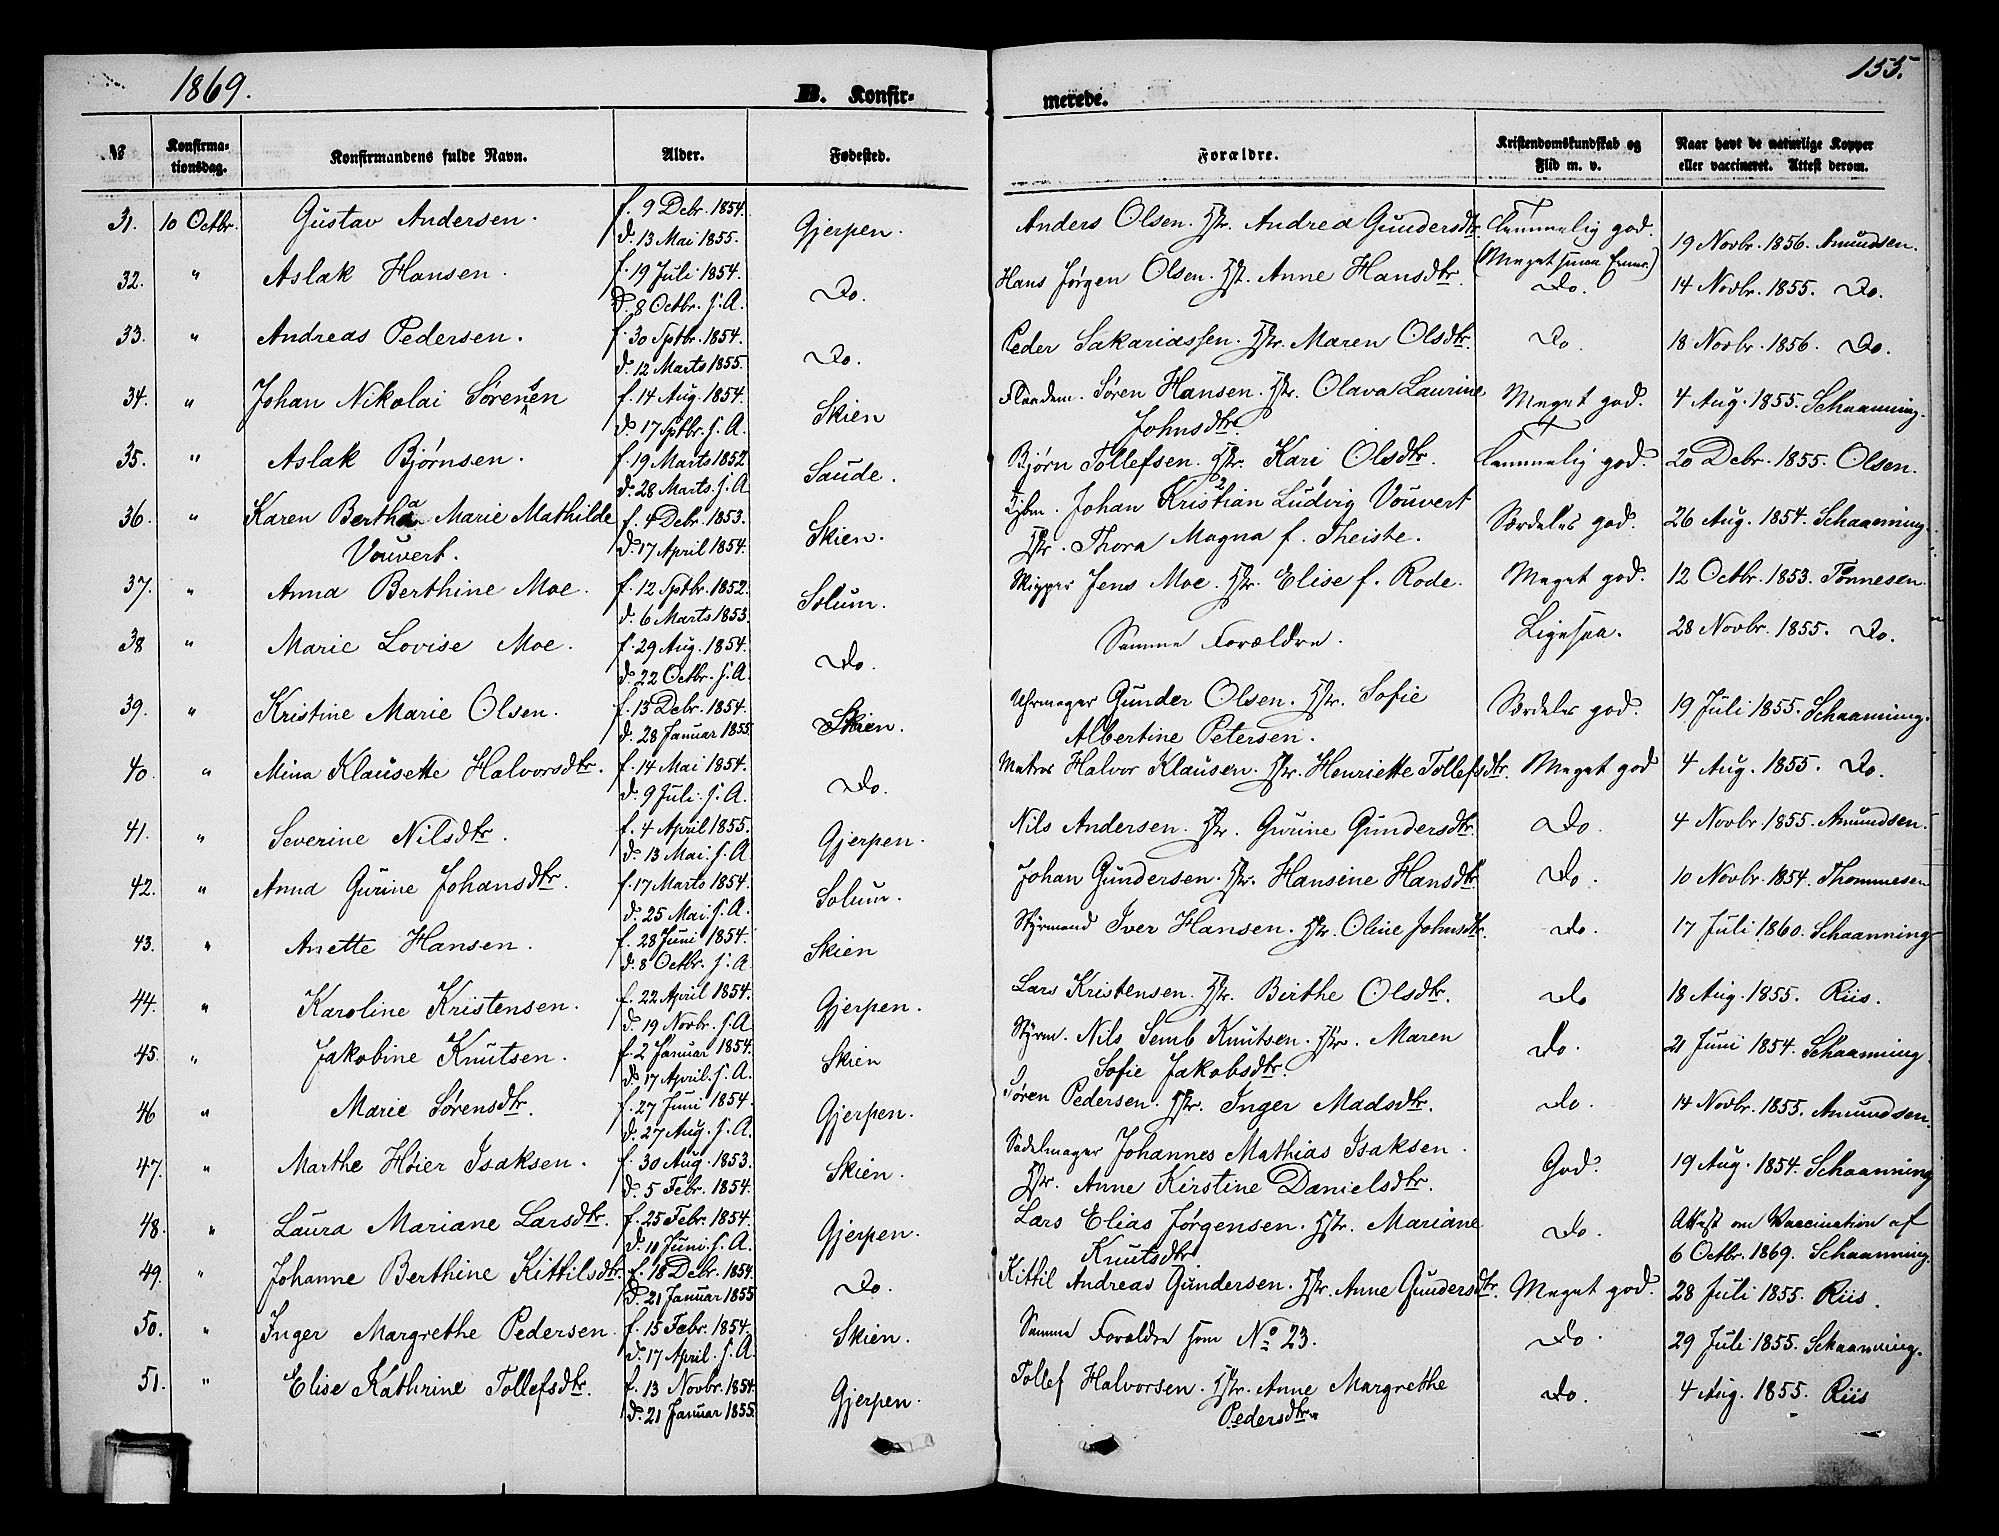 1869.
B. Konfir-
merede.
155.
№ Konfirma-tionsdag. Konfirmandens fulde Navn. Alder. Fødested. Forældre. Kristendomskundskab og Flid m. v. Naar havt de naturlige Kopper eller vaccineret. Attest derom.
31. 10 Octbr. Gustav Andersen. f. 9 Debr. 1854. Gjerpen. Anders Olsen. Hstr. Andrea Gundersdtr. Temmelig god. 19 Novbr. 1856. Amundsen.
d. 13 Mai 1855. (Meget smaa Evner.)
32. " Aslak Hansen. f. 19 Juli 1854. Do. Hans Jørgen Olsen. Hst. Anne Hansdtr. Do. 14 Novbr. 1855. Do.
d. 8 Octbr. s. A.
33. " Andreas Pedersen. f. 30 Sptbr. 1854. Do. Peder Sakariassen. Hstr. Maren Olsdtr. Do. 18 Novbr. 1856. Do.
d. 12 Marts 1855.
34. " Johan Nikolai Sørensen f. 14 Aug. 1854. Skien Søren Hansen. Hstr. Olava Laurine Meget god. 4 Aug. 1855. Schaanning.
d. 17 Sptbr. s. A. Johnsdtr.
35. " Aslak Bjørnsen. f. 19 Marts 1852 Saude. Bjørn Tollefsen. Hstr. Kari Olsdtr. Temmelig god. 20 Debr. 1855. Olsen.
d. 28 Marts. s. A
36. " Karen Bertha Marie Mathilde f. 4 Debr. 1853. Skien. Johan Kristian Ludvig Vouvert Særdeles god. 26 Aug. 1854. Schaanning.
Vouvert. d. 17 April 1854. Hstr. Thora Magna f. Theiste.
37. " Anna Berthine Moe. f. 12 Sptbr. 1852. Solum. Skipper Jens Moe. Hstr. Elise f. Rode. Meget god. 12 Octbr. 1853. Tønnesen.
d. 6 Marts 1853.
38 " Marie Lovise Moe. f. 29 Aug. 1854. Do. Samme Forældre. Ligesaa. 28 Novbr. 1855. Do.
d. 22 Octbr. s. A
39. " Kristine Marie Olsen. f. 13 Debr. 1854. Skien. Uhrmager Gunder Olsen. Hstr. Sofie Særdeles god. 19 Juli 1855. Schaanning.
d. 28 Januar 1855 Albertine Petersen.
40. " Mina Klausette Halvorsdtr. f. 14 Mai 1854. Do. Matros Halvor Klausen. Hstr. Henriette Tollefsdtr. Meget god 4 Aug. 1855. Do.
d. 9 Juli. s. A.
41. " Severine Nilsdtr. f. 4 April 1855. Gjerpen. Nils Andersen. Hstr. Gurine Gundersdtr. Do. 4 Novbr. 1855. Amundsen.
d. 13 Mai. s. A
42. " Anna Gurine Johansdtr. f. 17 Marts 1854. Solum. Johan Gundersen. Hstr. Hansine Hansdtr. Do. 10 Novbr. 1854. Thommesen
d. 25 Mai. s. A.
43. " Anette Hansen. f. 28 Juni 1854. Skien Styrmand Iver Hansen. Hstr. Oline Johnsdtr. Do. 17 Juli 1860. Schaanning
d. 8 Octbr. s. A
44. " Karoline Kristensen. f. 22 April 1854. Gjerpen. Lars Kristensen. Hstr. Birthe Olsdtr. Do 18 Aug. 1855. Riis.
d. 19 Novbr. s. A
45. " Jakobine Knutsen. f. 2 Januar 1854. Skien Styrm. Nils Semb Knutsen. Hstr. Maren Do. 21 Juni 1854. Schaanning
d. 17 April. s. A. Sofie Jakobsdtr.
46 " Marie Sørensdtr. f. 27 Juni 1854. Gjerpen. Søren Pedersen. Hstr. Inger Madsdtr. Do. 14 Novbr. 1855. Amundsen.
d. 27 Aug. s. A
47. " Marthe Høier Isaksen. f. 30 Aug. 1853. Skien. Sadelmager Johannes Mathias Isaksen. God. 19 Aug. 1854. Schaanning
d. 5 Febr. 1854. Hstr. Anne Kirstine Danielsdtr.
48. " Laura Mariane Larsdtr. f. 25 Febr. 1854. Gjerpen. Lars Elias Jørgensen. Hstr. Mariane Do. Attest om Vaccination af
d. 11 Juni. s. A. Knutsdtr 6 Octbr. 1869. Schaanning.
49. " Johanne Berthine Kittilsdtr. f. 18 Debr. 1854. Do. Kittil Andreas Gundersen. Hstr. Anne Gundersdtr. Meget god. 28 Juli 1855. Riis.
d. 21 Januar 1855
50. " Inger Margrethe Pedersen. f. 15 Febr. 1854. Skien. Samme Forældre som No 23. Do. 29 Juli 1855. Schaanning.
d. 17 April. s. A
51. " Elise Kathrine Tollefsdtr. f. 13 Novbr. 1854. Gjerpen. Tollef Halvorsen. Hstr. Anne Margrethe Do. 4 Aug. 1855. Riis
d. 21 Januar 1855. Pedersdtr.